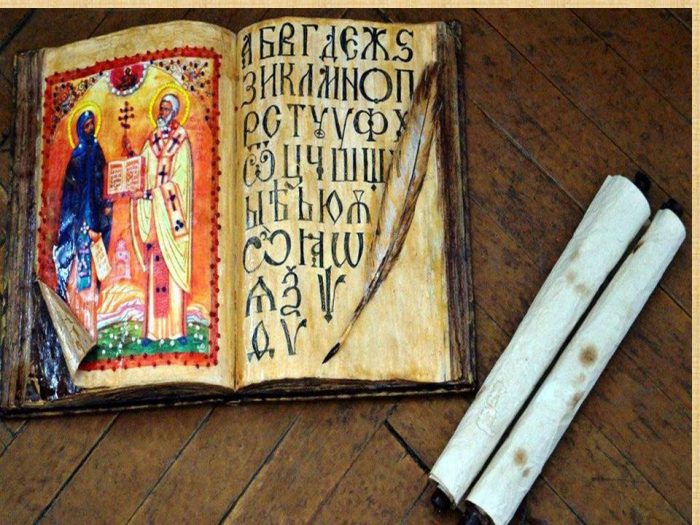 АБВГДЕЖЅ
ЗИКЛМНОП
РСТꙊѴФХ
ѾЦЧШЩ
ЫѢЪЮѦ
ѼꙖѠ
ѪѮѰ
Ѳ Ѵ